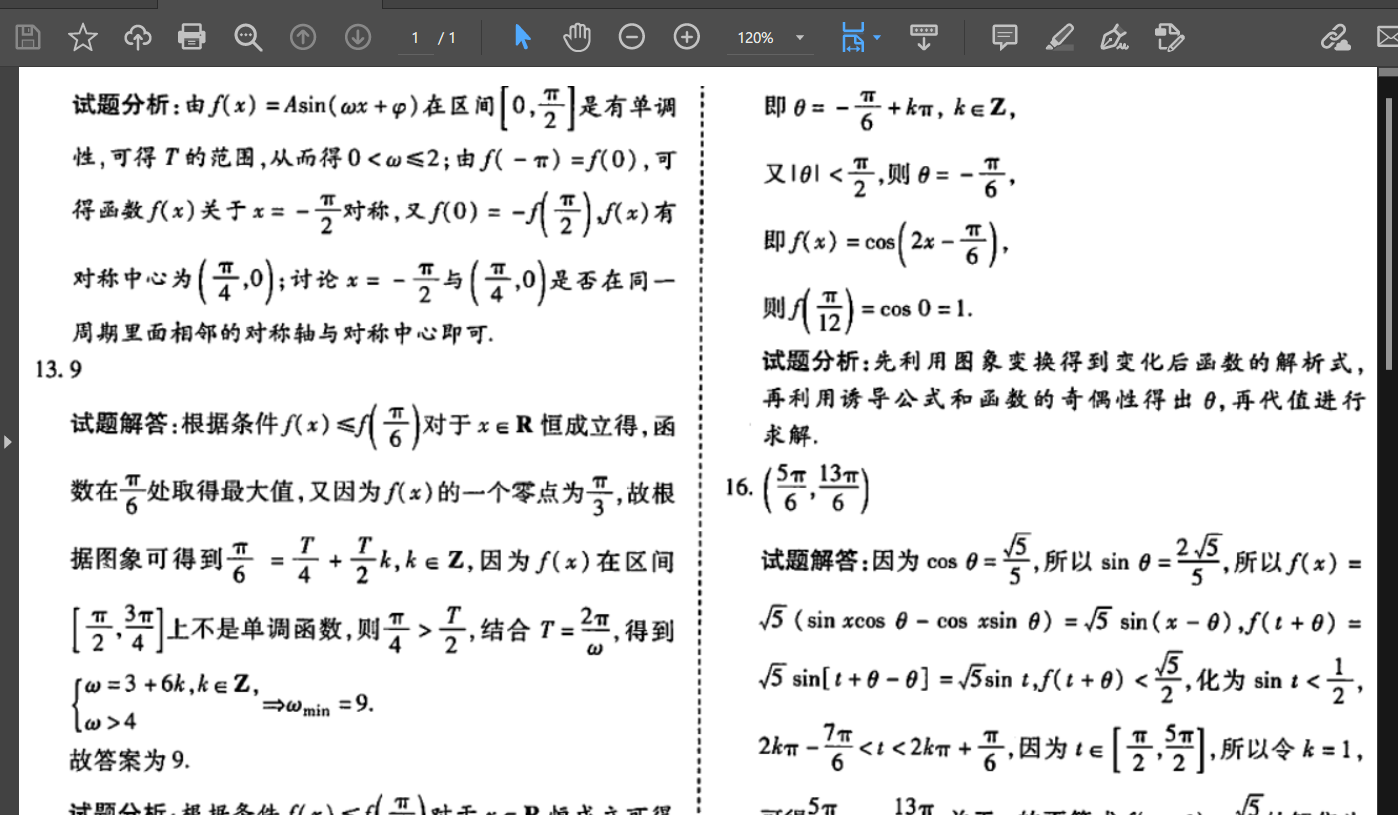 1 / 1
120%
试题分析:由 f(x) = Asin(ωx + φ) 在区间[0, π/2]是有单调
性,可得 T 的范围,从而得 0 < ω ≤ 2;由 f( - π) = f(0),可
得函数 f(x) 关于 x = - π/2 对称,又 f(0) = -f(π/2), f(x) 有
对称中心为(π/4, 0);讨论 x = - π/2 与(π/4, 0)是否在同一
周期里面相邻的对称轴与对称中心即可.
13. 9
试题解答:根据条件 f(x) ≤ f(π/6) 对于 x ∈ R 恒成立得,函
数在 π/6 处取得最大值,又因为 f(x) 的一个零点为 π/3,故根
据图象可得到 π/6 = T/4 + T/2 k, k ∈ Z,因为 f(x) 在区间
[π/2, 3π/4]上不是单调函数,则 π/4 > T/2,结合 T = 2π/ω,得到
{ω = 3 + 6k, k ∈ Z,
ω > 4 ⇒ ωmin = 9.
故答案为 9.
即 θ = - π/6 + kπ, k ∈ Z,
又 |θ| < π/2,则 θ = - π/6,
即 f(x) = cos(2x - π/6),
则 f(π/12) = cos 0 = 1.
试题分析:先利用图象变换得到变化后函数的解析式,
再利用诱导公式和函数的奇偶性得出 θ,再代值进行
求解.
16. (5π/6, 13π/6)
试题解答:因为 cos θ = √5/5,所以 sin θ = 2√5/5,所以 f(x) =
√5 (sin xcos θ - cos xsin θ) = √5 sin(x - θ), f(t + θ) =
√5 sin[t + θ - θ] = √5sin t, f(t + θ) < √5/2,化为 sin t < 1/2,
2kπ - 7π/6 < t < 2kπ + π/6,因为 t ∈ [π/2, 5π/2],所以令 k = 1,